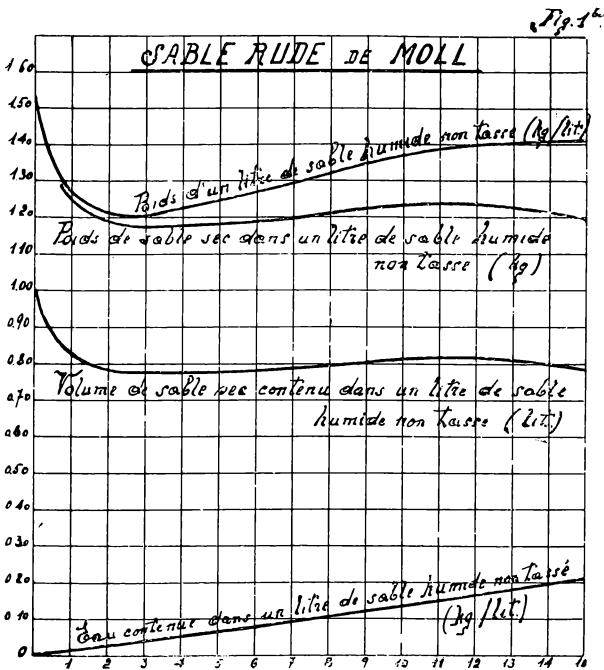 Fig. 1
SABLE RUDE DE MOLL
1 60
1.50
1.40
1.30
1.20
1.10
1.00
0.90
0.80
0.70
0.60
0.50
0.40
0.30
0.20
0.10
0
Poids d'un litre de sable humide non tassé (kg/lit.)
Poids de sable sec dans un litre de sable humide
non tassé (kg)
Volume de sable sec contenu dans un litre de sable
humide non tassé (lit.)
Eau contenue dans un litre de sable humide non tassé
(kg/lit.)
1 2 3 4 5 6 7 8 9 10 11 12 13 14